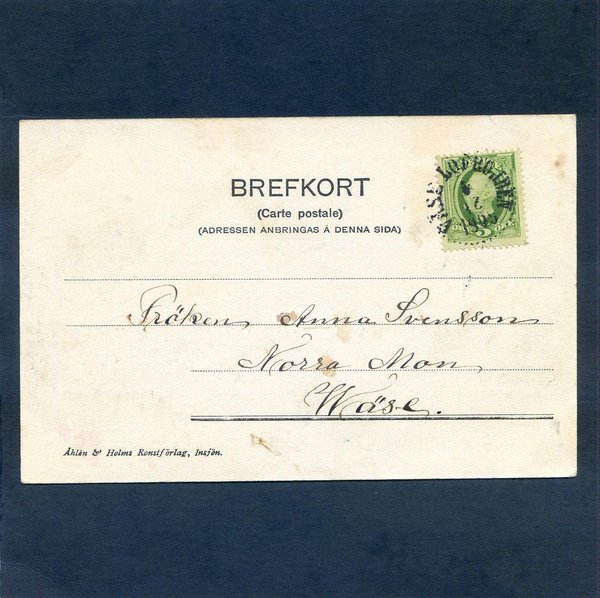 BREFKORT
(Carte postale)
(ADRESSEN ANBRINGAS Å DENNA SIDA)
Fröken Anna Svensson
Norra Mon
Wäse.
Åhlén & Holms Konstförlag, Insjön.